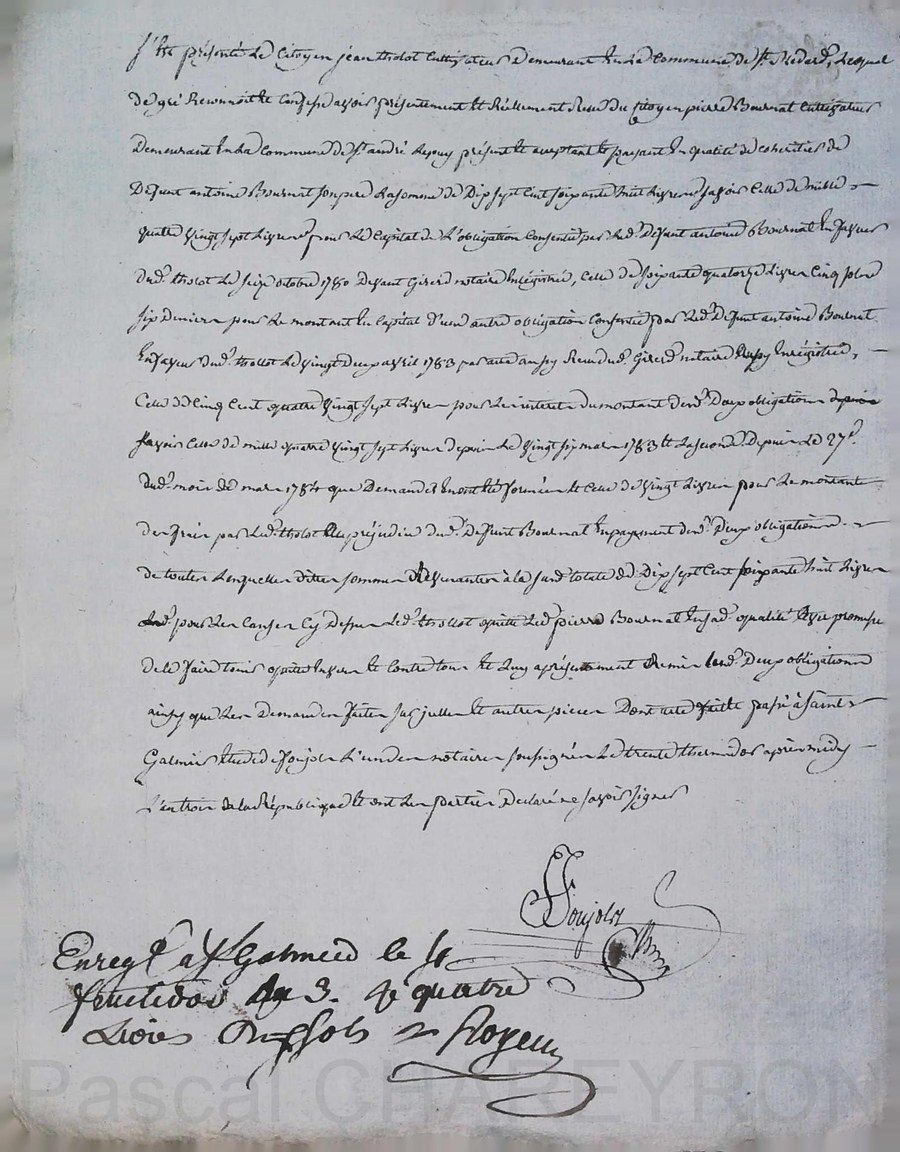 S'est présenté Le Citoyen jean tholot Cultivateur Demeurant En La Commune de St. Médard, Lequel
de gré Reconnoit et Confesse avoir présentement et Réellement Reçu du Citoyen pierre Bournat Cultivateur
Demeurant En La Commune de St. andré présent et acceptant et payant En qualité de coheritier de
Défunt antoine Bournat son pere La somme de Dix sept Cent soixante huit Livres savoir Celle de mille
quatre vingt sept Livres pour Le Capital de L'obligation Consentie par Led. Défunt antoine Bournat En faveur
dud. tholot Le seize octobre 1780 Devant Girerd notaire Enregistrée, Celle de soixante quatorze Livres Cinq sols
six Deniers pour Le montant En Capital d'une autre obligation Consentie par Led. Défunt antoine Bournat
En faveur dud. thollot Le vingt Deux avril 1783 par acte aussy Reçu dud. Girerd notaire aussy Enregistrée,
Celle de Cinq Cent quatre vingt sept Livres pour Les interets du montant desd. Deux obligations depuis
savoir Celle de mille quatre vingt sept Livres depuis Le vingt six mars 1783 et La seconde Depuis Le 27e.
dud. mois de mars 1784 que Demandes En ont été formées et Celle de vingt Livres pour Le montant
des frais par Led. tholot au préjudice dud. Défunt Bournat En payement desd. Deux obligations
de toutes Lesquelles dites sommes Revenantes à la susd. totale de Dix sept Cent soixante huit Livres
pour Les Causes Cy Dessus Led. thollot quitte Led. pierre Bournat En sad. qualité avec promesse
de le faire tenir quitte Envers et Contre tous et Luy a présentement Remis Lesd. Deux obligations
ainsy que Les Demandes faites sur jcelles et autres pieces Dont acte fait et passé à Saint
Galmier Etude de foujols L'un des notaires soussignés Le trente thermidor après midy
L'an trois de la République et ont Les parties Declaré ne savoir signer
Foujols
Enregt. a St Galmier le
fructidor an 3. R quatre
Livres sols Royeu
Pascal CHAPEYRON